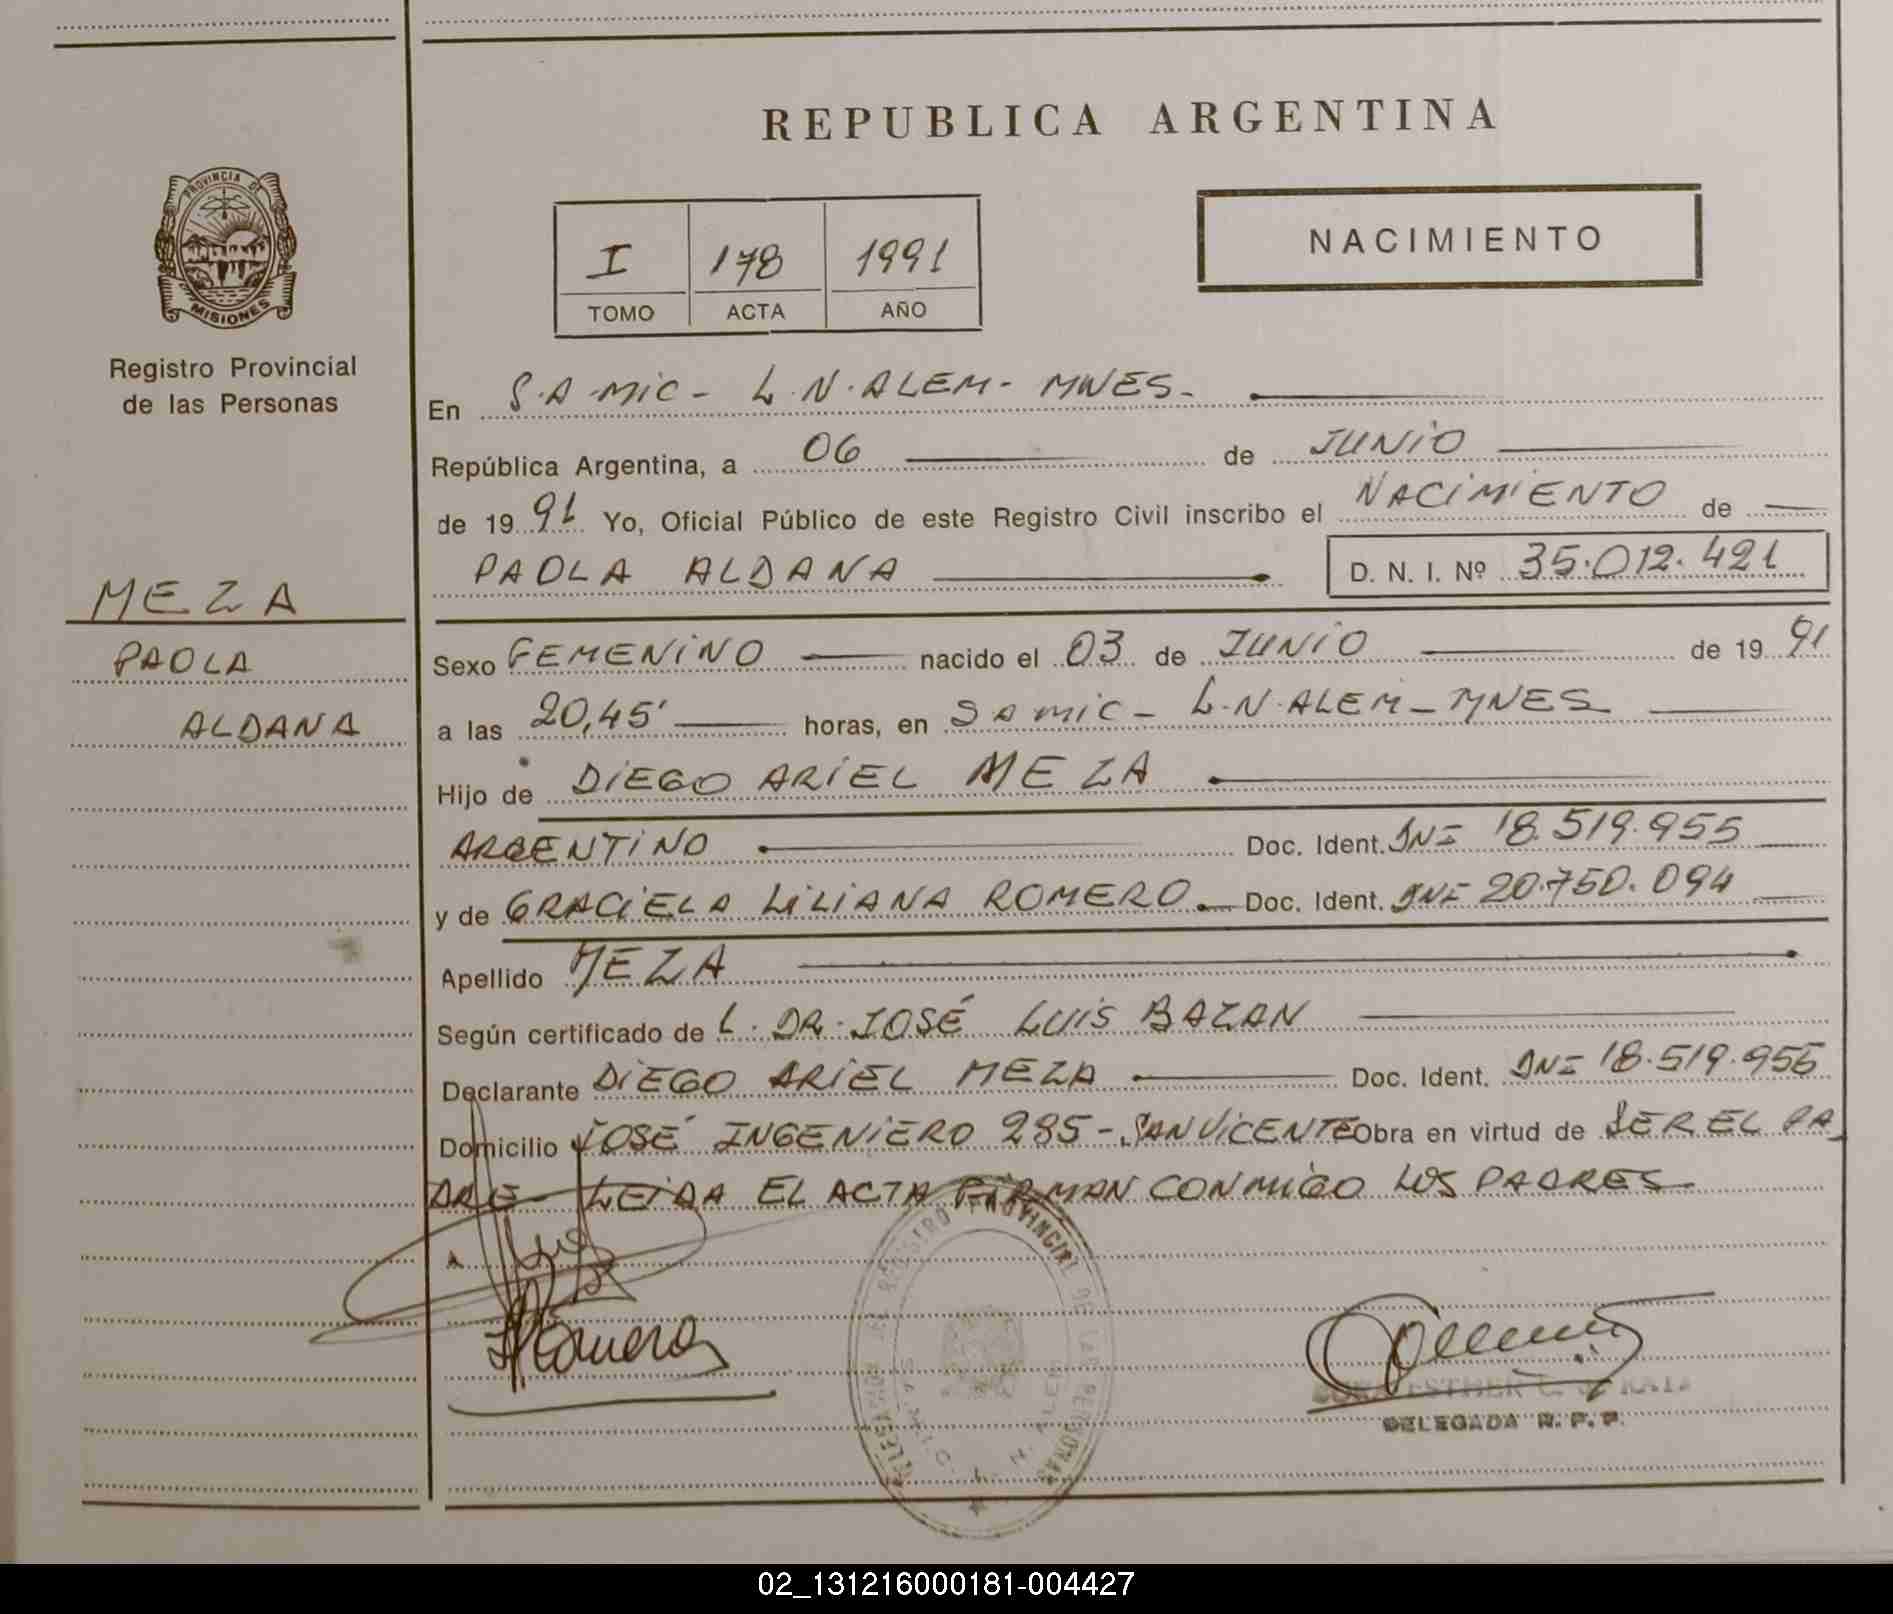 REPUBLICA ARGENTINA
PROVINCIA DE
MISIONES
Registro Provincial
de las Personas
I 178 1991
TOMO ACTA AÑO
NACIMIENTO
En S.A.MIC - L.N.ALEM - MNES -
República Argentina, a 06 de JUNIO
de 1991 Yo, Oficial Público de este Registro Civil inscribo el NACIMIENTO de
PAOLA ALDANA D. N. I. Nº 35.012.421
MEZA
PAOLA
ALDANA
Sexo FEMENINO nacido el 03 de JUNIO de 1991
a las 20,45' horas, en SAMIC - L.N.ALEM - MNES
Hijo de DIEGO ARIEL MEZA
ARGENTINO Doc. Ident. DNI 18.519.955
y de GRACIELA LILIANA ROMERO. Doc. Ident. DNI 20.750.094
Apellido MEZA
Según certificado de L. DR. JOSÉ LUIS BAZAN
Declarante DIEGO ARIEL MEZA Doc. Ident. DNI 18.519.955
Domicilio JOSÉ INGENIERO 285 - SAN VICENTE Obra en virtud de SER EL PA-
DRE - LEIDA EL ACTA FIRMAN CONMIGO LOS PADRES
REGISTRO PROVINCIAL DE LAS PERSONAS
N. ALEM
ESTHER
DELEGADA R. P. P.
02_131216000181-004427